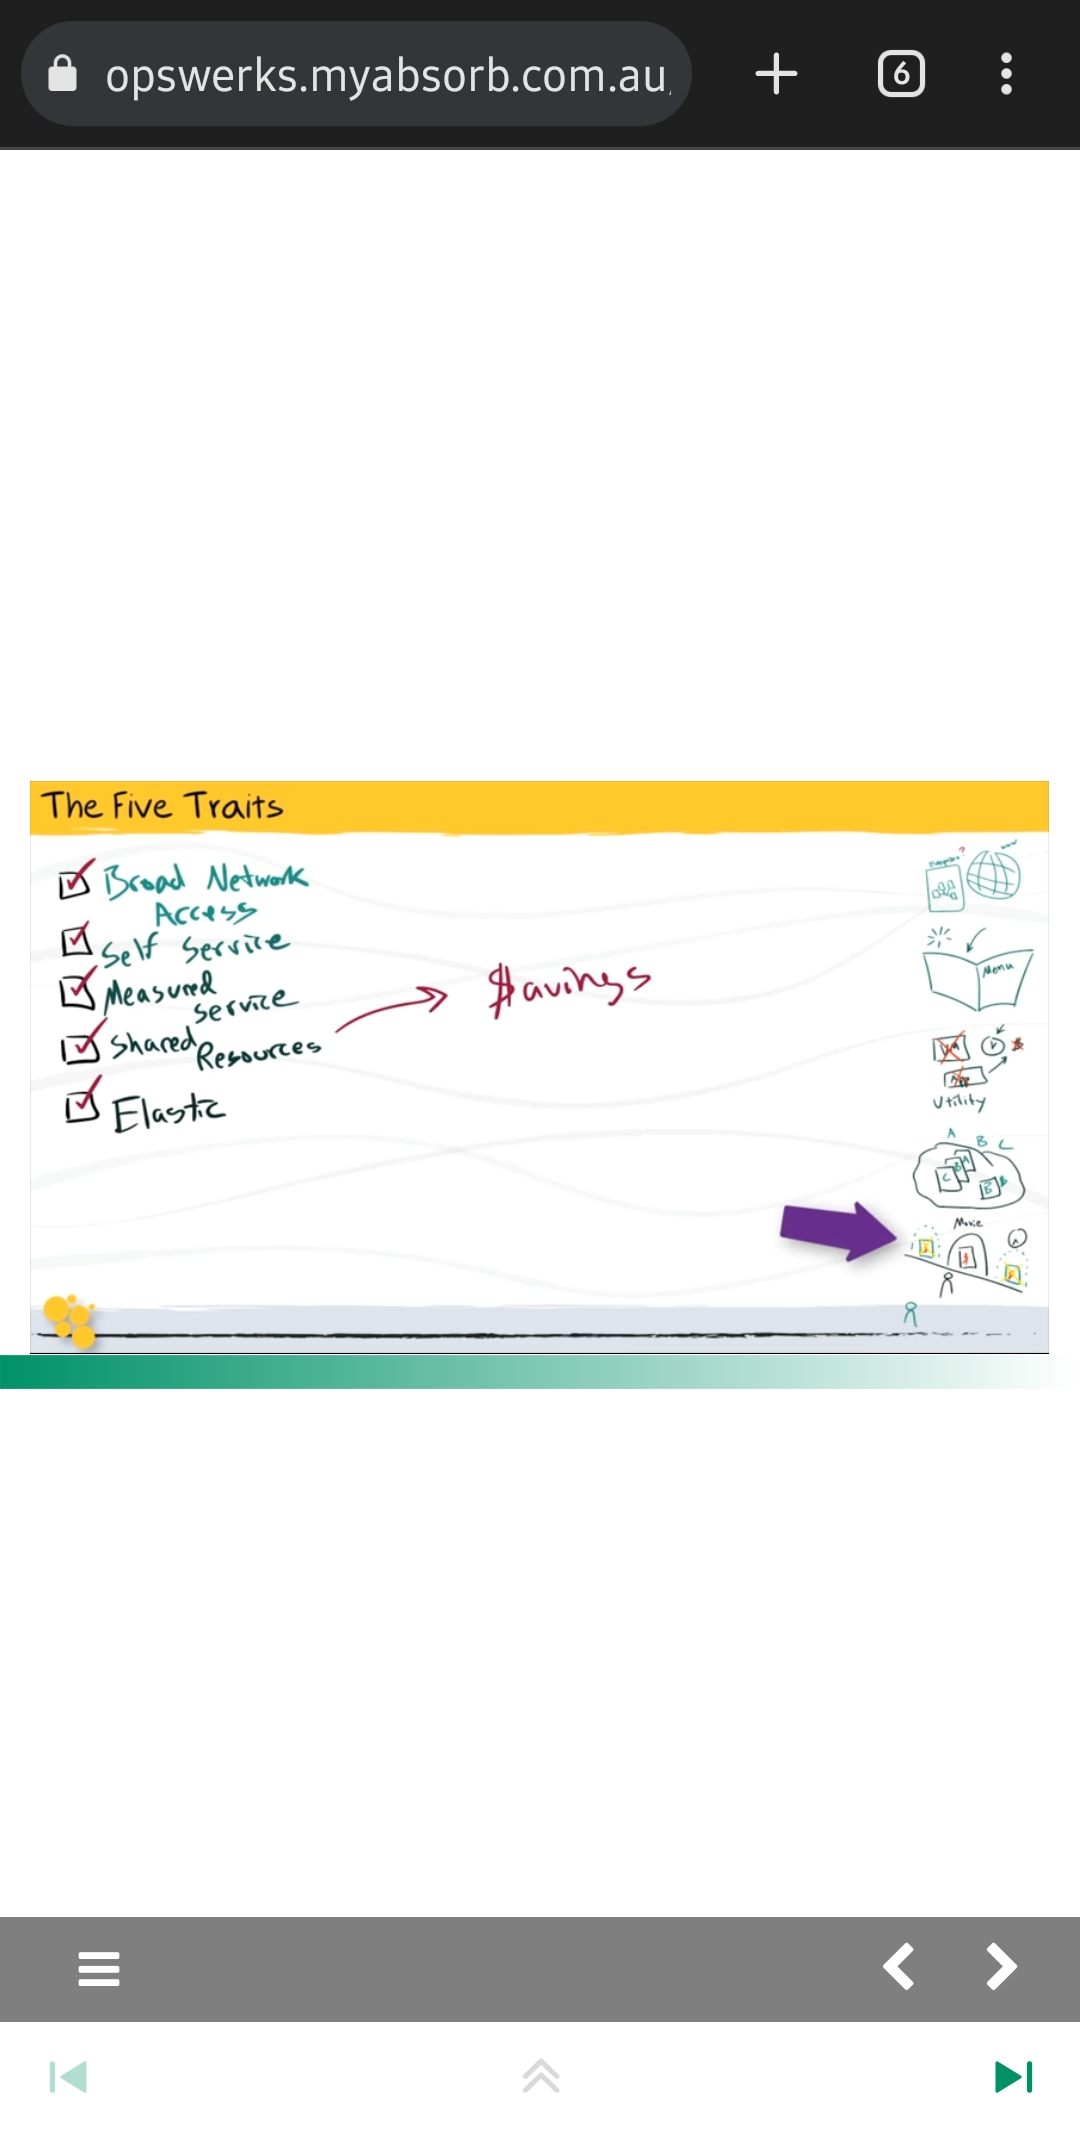 opswerks.myabsorb.com.au
6
The Five Traits
Broad Network
Access
Self Service
Measured
Service
Shared Resources
Elastic
$avings
Menu
Utility
A B C
Movie